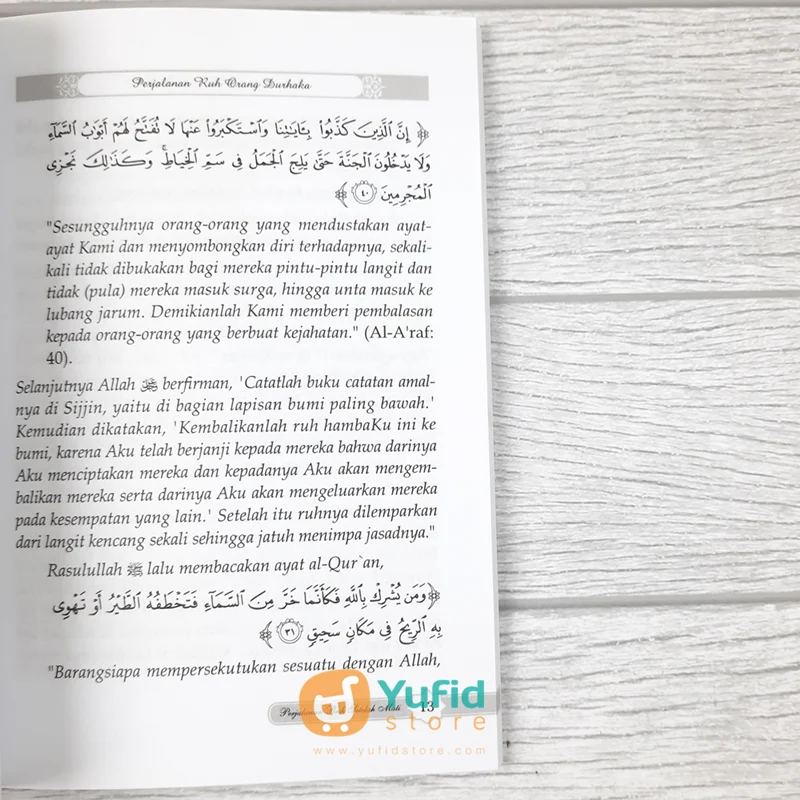 Perjalanan Ruh Orang Durhaka
﴿ إِنَّ ٱلَّذِينَ كَذَّبُوا۟ بِـَٔايَـٰتِنَا وَٱسْتَكْبَرُوا۟ عَنْهَا لَا تُفَتَّحُ لَهُمْ أَبْوَٰبُ ٱلسَّمَآءِ
وَلَا يَدْخُلُونَ ٱلْجَنَّةَ حَتَّىٰ يَلِجَ ٱلْجَمَلُ فِى سَمِّ ٱلْخِيَاطِ ۚ وَكَذَٰلِكَ نَجْزِى
ٱلْمُجْرِمِينَ ٤٠ ﴾
"Sesungguhnya orang-orang yang mendustakan ayat-
ayat Kami dan menyombongkan diri terhadapnya, sekali-
kali tidak dibukakan bagi mereka pintu-pintu langit dan
tidak (pula) mereka masuk surga, hingga unta masuk ke
lubang jarum. Demikianlah Kami memberi pembalasan
kepada orang-orang yang berbuat kejahatan." (Al-A'raf:
40).
Selanjutnya Allah berfirman, 'Catatlah buku catatan amal-
nya di Sijjin, yaitu di bagian lapisan bumi paling bawah.'
Kemudian dikatakan, 'Kembalikanlah ruh hambaKu ini ke
bumi, karena Aku telah berjanji kepada mereka bahwa darinya
Aku menciptakan mereka dan kepadanya Aku akan mengem-
balikan mereka serta darinya Aku akan mengeluarkan mereka
pada kesempatan yang lain.' Setelah itu ruhnya dilemparkan
dari langit kencang sekali sehingga jatuh menimpa jasadnya."
Rasulullah ﷺ lalu membacakan ayat al-Qur`an,
﴿ وَمَن يُشْرِكْ بِٱللَّهِ فَكَأَنَّمَا خَرَّ مِنَ ٱلسَّمَآءِ فَتَخْطَفُهُ ٱلطَّيْرُ أَوْ تَهْوِى
بِهِ ٱلرِّيحُ فِى مَكَانٍ سَحِيقٍ ٣١ ﴾
"Barangsiapa mempersekutukan sesuatu dengan Allah,
Perjalanan Ruh Setelah Mati 13
Yufid
store
www.yufidstore.com